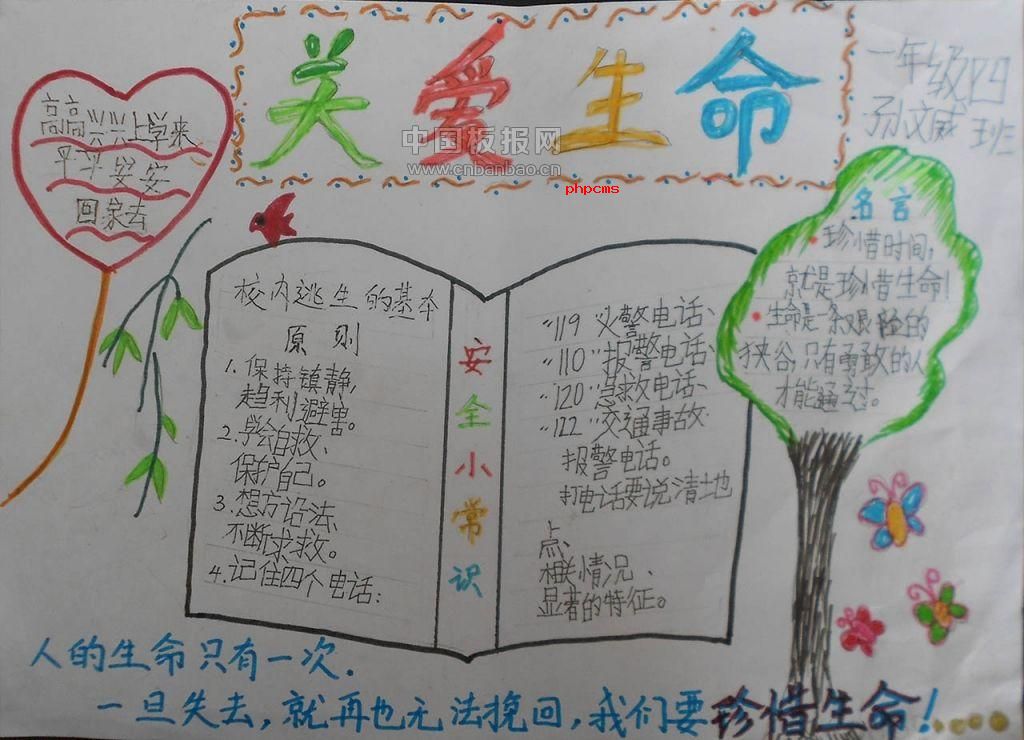 关爱生命
中国板报网
www.cnbanbao.cn
phpcms
一年级四班
孙文威
高高兴兴上学来
平平安安
回家去
校内逃生的基本
原则
1.保持镇静,
趋利避害。
2.学会自救、
保护自己。
3.想方设法、
不断求救。
4.记住四个电话:
安全小常识
“119”火警电话、
“110”报警电话、
“120”急救电话、
“122”交通事故
报警电话。
打电话要说清地
点、
相关情况、
显著的特征。
名言
珍惜时间,
就是珍惜生命!
生命是一条艰险的
狭谷,只有勇敢的人
才能通过。
人的生命只有一次.
一旦失去,就再也无法挽回,我们要珍惜生命!